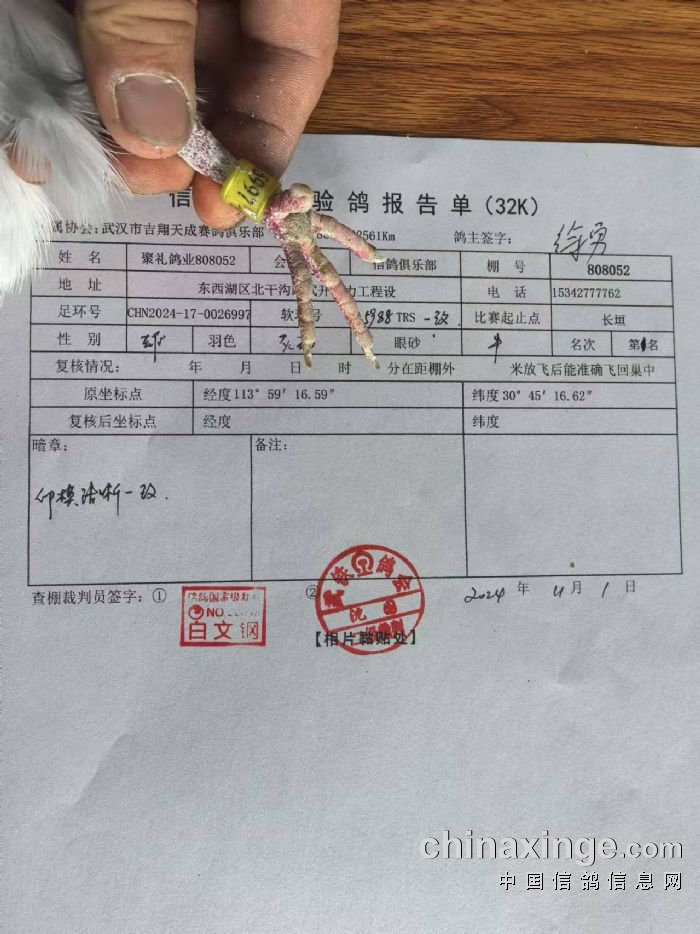 信 验鸽报告单(32K)
属协会:武汉市吉翔天成赛鸽俱乐部 8561Km 鸽主签字: 徐勇
姓 名 聚礼鸽业808052 会 信鸽俱乐部 棚 号 808052
地 址 东西湖区北干沟 力工程设 电 话 15342777762
足环号 CHN2024-17-0026997 软 号 5988 TRS 一致 比赛起止点 长垣
性 别 羽色 眼砂 牛 名次 第1名
复核情况: 年 月 日 时 分在距棚外 米放飞后能准确飞回巢中
原坐标点 经度113° 59′ 16.59″ 纬度30° 45′ 16.62″
复核后坐标点 经度 纬度
暗章: 备注:
印模清晰一致.
查棚裁判员签字:① ② 2024 年 4 月 1 日
信鸽国家级裁判
NO
白文钢
铁 鸽会
【相片黏贴处】
chinaxinge.com
中国信鸽信息网